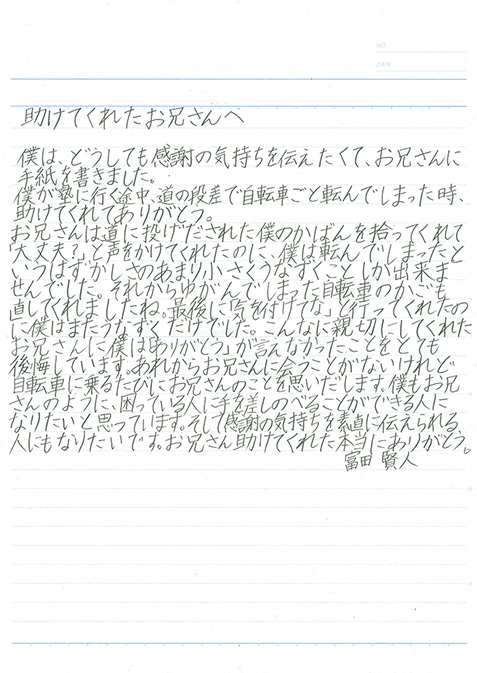 NO
DATE
助けてくれたお兄さんへ
僕は、どうしても感謝の気持ちを伝えたくて、お兄さんに
手紙を書きました。
僕が塾に行く途中、道の段差で自転車ごと転んでしまった時、
助けてくれてありがとう。
お兄さんは道に投げだされた僕のかばんを拾ってくれて
「大丈夫?」と声をかけてくれたのに、僕は転んでしまったと
いうはずかしさのあまり小さくうなずくことしか出来ま
せんでした。それからゆがんでしまった自転車のかごも
直してくれましたね。最後に「気を付けてな」と行ってくれたの
に僕はまたうなずくだけでした。こんなに親切にしてくれた
お兄さんに僕は「ありがとう」が言えなかったことをとても
後悔しています。あれからお兄さんに会うことがないけれど
自転車に乗るたびにお兄さんのことを思いだします。僕もお兄
さんのように、困っている人に手を差しのべることができる人に
なりたいと思っています。そして感謝の気持ちを素直に伝えられる、
人にもなりたいです。お兄さん助けてくれた本当にありがとう。
富田 賢人